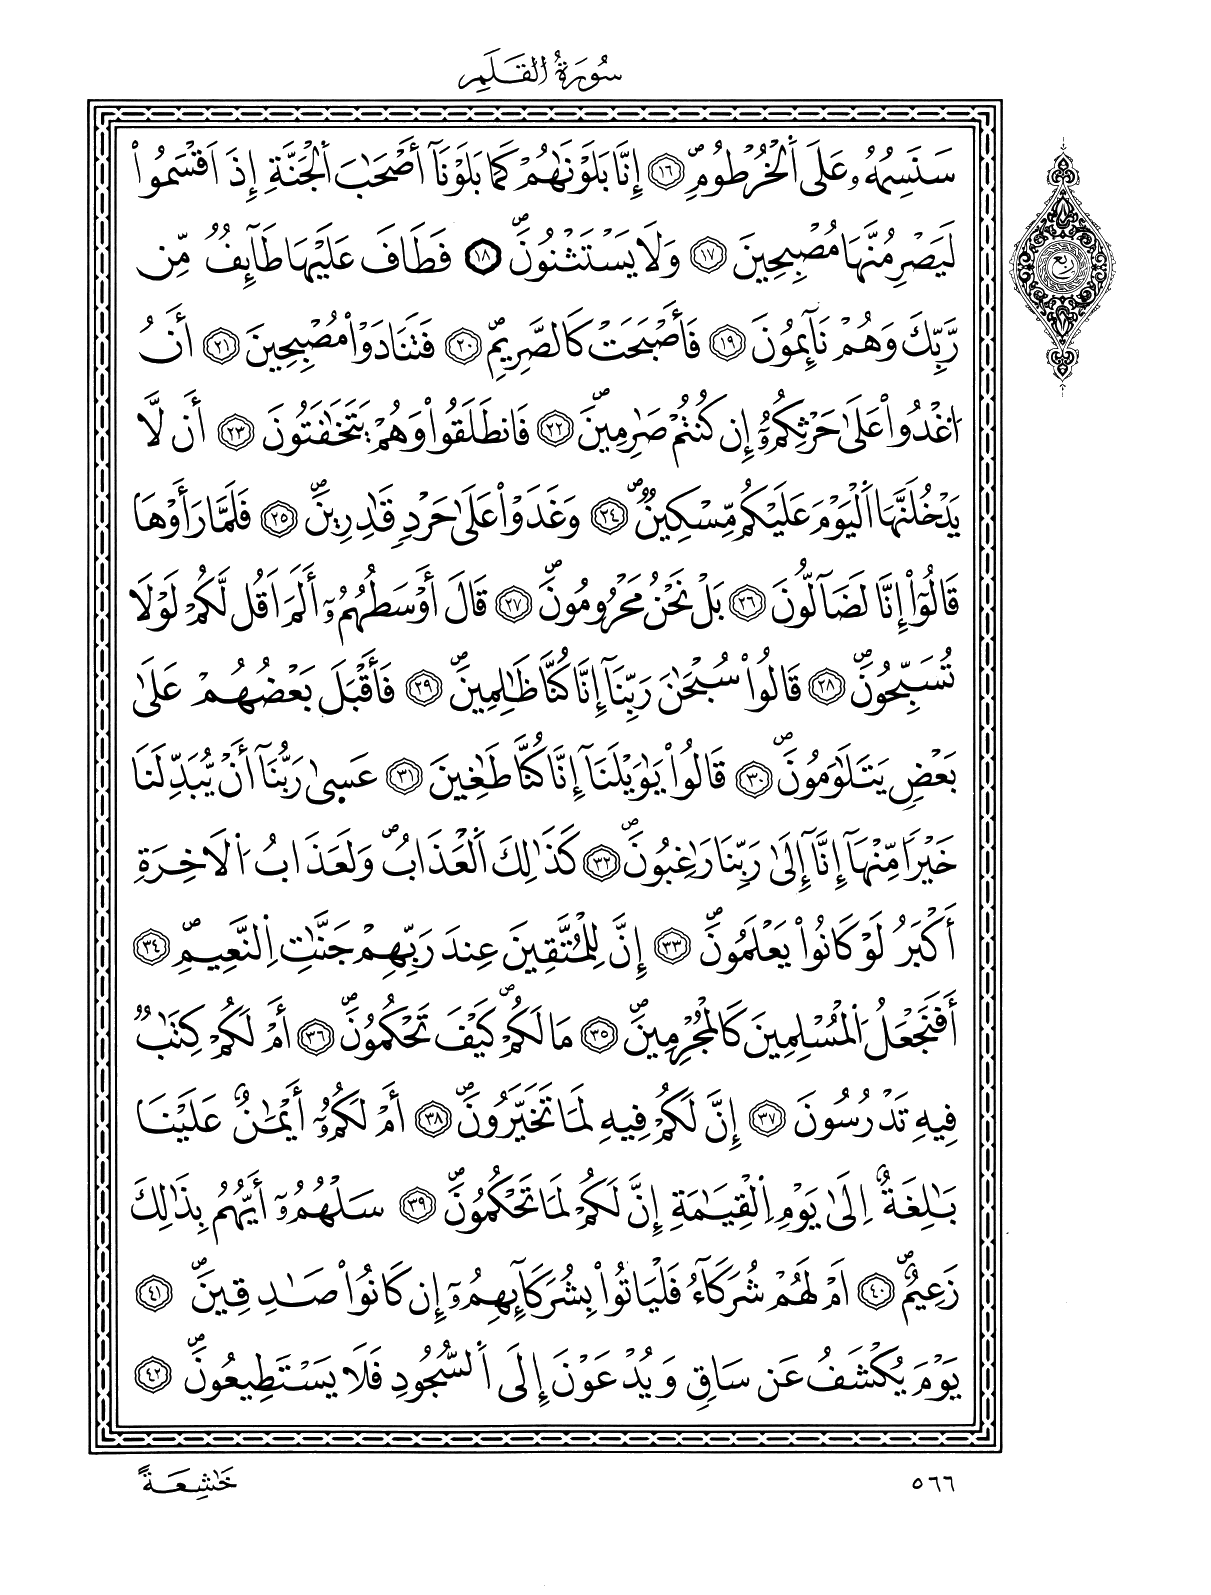 سُورَةُ القَلَمِ
سَنَسِمُهُۥ عَلَى اَ۬لْخُرْطُومِۖ ١٦ إِنَّا بَلَوْنَٰهُمْ كَمَا بَلَوْنَآ أَصْحَٰبَ اَ۬لْجَنَّةِ إِذَ اَقْسَمُواْ
لَيَصْرِمُنَّهَا مُصْبِحِينَ ١٧ وَلَا يَسْتَثْنُونَۖ ١٨ فَطَافَ عَلَيْهَا طَآئِفٞ مِّن
رَّبِّكَ وَهُمْ نَآئِمُونَ ١٩ فَأَصْبَحَتْ كَالصَّرِيمِۖ ٢٠ فَتَنَادَوْاْ مُصْبِحِينَ ٢١ أَنُ
اُ۟غْدُواْ عَلَىٰ حَرْثِكُمُۥٓ إِن كُنتُمْ صَٰرِمِينَۖ ٢٢ فَانطَلَقُواْ وَهُمْ يَتَخَٰفَتُونَ ٢٣ أَن لَّا
يَدْخُلَنَّهَا اَ۬لْيَوْمَ عَلَيْكُم مِّسْكِينٞۖ ٢٤ وَغَدَوْاْ عَلَىٰ حَرْدٖ قَٰدِرِينَۖ ٢٥ فَلَمَّا رَأَوْهَا
قَالُوٓاْ إِنَّا لَضَآلُّونَ ٢٦ بَلْ نَحْنُ مَحْرُومُونَۖ ٢٧ قَالَ أَوْسَطُهُمُۥٓ أَلَمَ اَقُل لَّكُمْ لَوْلَا
تُسَبِّحُونَۖ ٢٨ قَالُواْ سُبْحَٰنَ رَبِّنَآ إِنَّا كُنَّا ظَٰلِمِينَۖ ٢٩ فَأَقْبَلَ بَعْضُهُمْ عَلَىٰ
بَعْضٖ يَتَلَٰوَمُونَۖ ٣٠ قَالُواْ يَٰوَيْلَنَآ إِنَّا كُنَّا طَٰغِينَ ٣١ عَسىٰ رَبُّنَآ أَنْ يُّبَدِّلَنَا
خَيْراٗ مِّنْهَآ إِنَّآ إِلَىٰ رَبِّنَا رَٰغِبُونَۖ ٣٢ كَذَٰلِكَ اَ۬لْعَذَابُۖ وَلَعَذَابُ اُ۬لَاخِرَةِ
أَكْبَرُ لَوْ كَانُواْ يَعْلَمُونَۖ ٣٣ إِنَّ لِلْمُتَّقِينَ عِندَ رَبِّهِمْ جَنَّٰتِ اِ۬لنَّعِيمِۖ ٣٤
أَفَنَجْعَلُ اُ۬لْمُسْلِمِينَ كَالْمُجْرِمِينَۖ ٣٥ مَا لَكُمْۖ كَيْفَ تَحْكُمُونَۖ ٣٦ أَمْ لَكُمْ كِتَٰبٞ
فِيهِ تَدْرُسُونَ ٣٧ إِنَّ لَكُمْ فِيهِ لَمَا تَخَيَّرُونَۖ ٣٨ أَمْ لَكُمُۥٓ أَيْمَٰنٌ عَلَيْنَا
بَٰلِغَةٌ اِلَىٰ يَوْمِ اِ۬لْقِيَٰمَةِ إِنَّ لَكُمْ لَمَا تَحْكُمُونَۖ ٣٩ سَلْهُمُۥٓ أَيُّهُم بِذَٰلِكَ
زَعِيمٌۖ ٤٠ اَمْ لَهُمْ شُرَكَآءُ فَلْيَاتُواْ بِشُرَكَآئِهِمُۥٓ إِن كَانُواْ صَٰدِقِينَۖ ٤١
يَوْمَ يُكْشَفُ عَن سَاقٖ وَيُدْعَوْنَ إِلَى اَ۬لسُّجُودِ فَلَا يَسْتَطِيعُونَۖ ٤٢
ربع
٥٦٦
خَٰشِعَةً